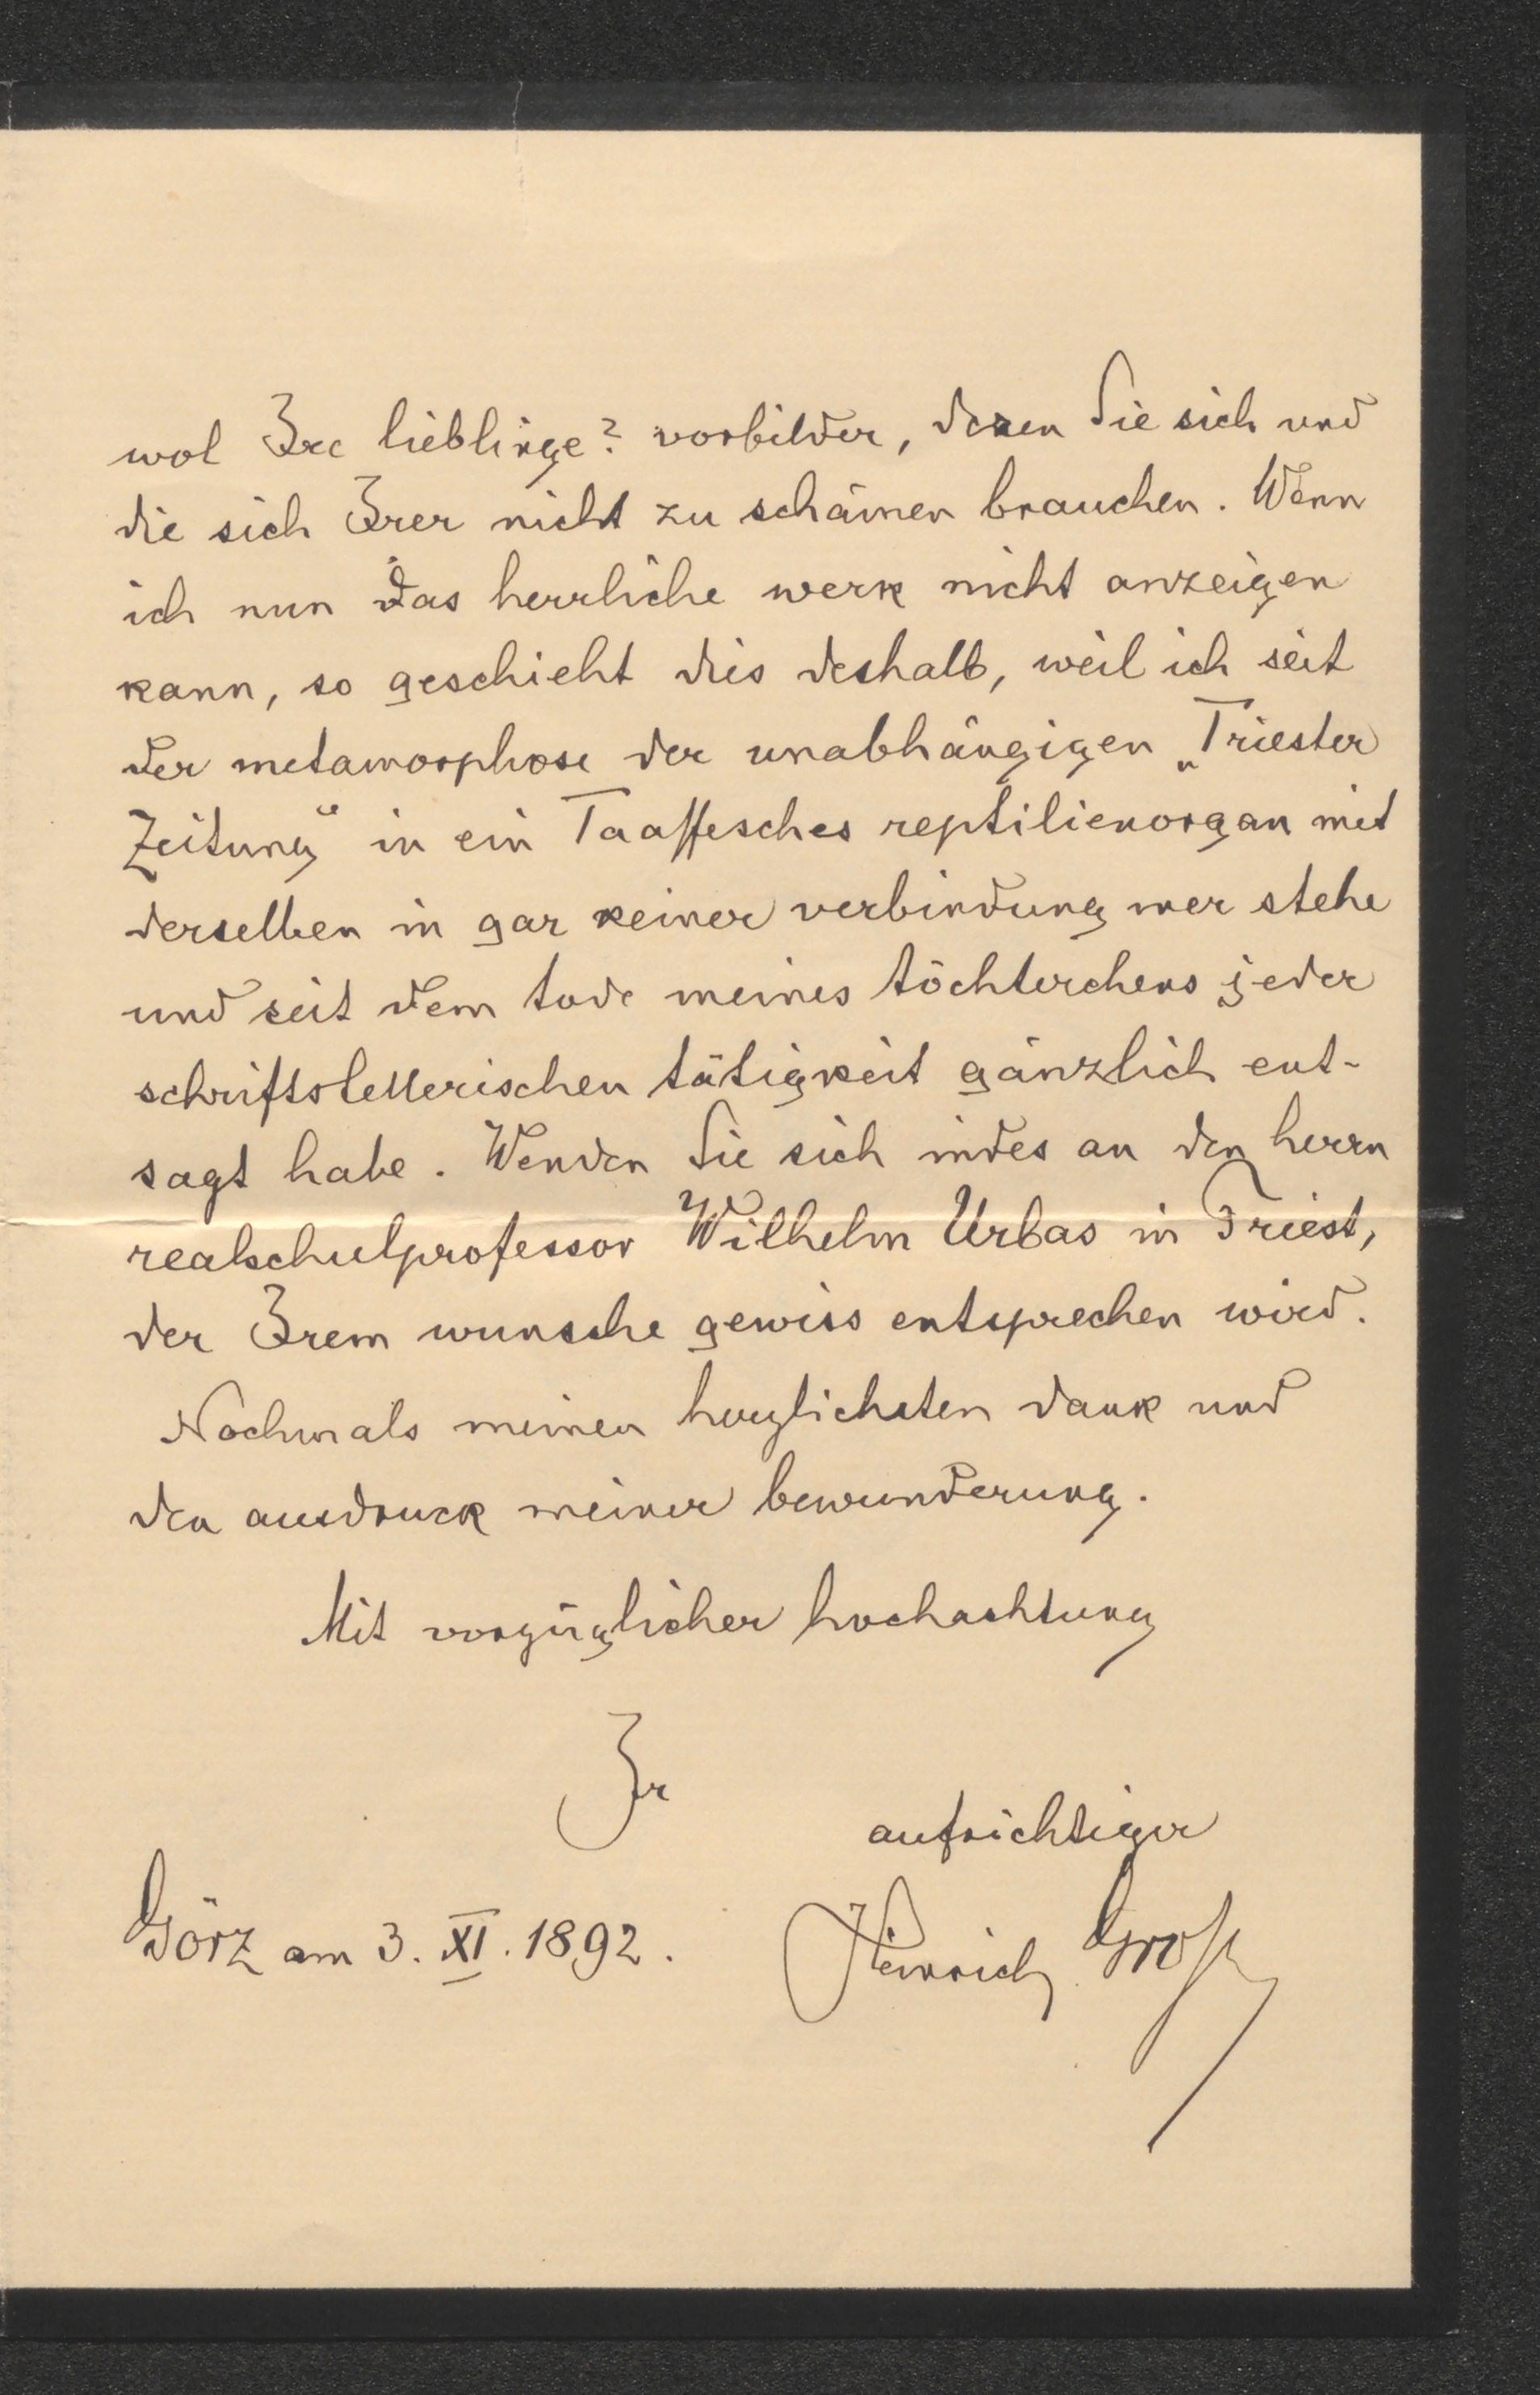 wol Ire lieblinge? vorbilder, deren Sie sich und
die sich Irer nicht zu schämen brauchen. Wenn
ich nun das herrliche werk nicht anzeigen
kann, so geschieht dies deshalb, weil ich seit
der metamorphose der unabhängigen „Triester
Zeitung“ in ein Taaffesches reptilienorgan mit
derselben in gar keiner verbindung mer stehe
und seit dem tode meines töchterchens jeder
schriftstellerischen tätigkeit gänzlich ent-
sagt habe. Wenden Sie sich indes an den herrn
realschulprofessor Wilhelm Urbas in Triest,
der Irem wunsche gewiss entsprechen wird.
Nochmals meinen herzlichsten dank und
den ausdruck meiner bewunderung.
Mit vorzüglicher hochachtung
Ir
aufrichtiger
Görz am 3. XI. 1892. Heinrich Groß